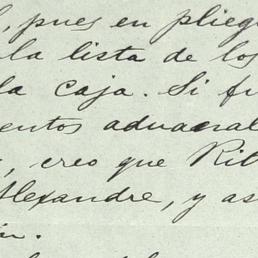 , pues en plieg
la lista de los
la caja. Si fu
entos aduanal
, creo que Rib
Alexandre, y as